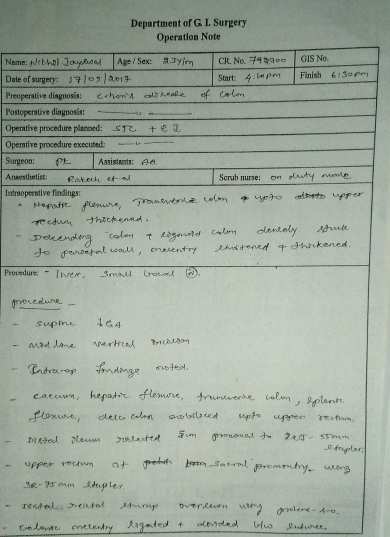 Department of G. I. Surgery
Operation Note
Name: Age / Sex: 23y/m CR. No. GIS No.
Date of surgery: 17/05/2017 Start: 4: pm Finish 6:30pm
Preoperative diagnosis: Crohn's disease of colon
Postoperative diagnosis:
Operative procedure planned: STC +
Operative procedure executed:
Surgeon: Assistants:
Anaesthetist: Rakesh et al Scrub nurse: on duty
Intraoperative findings:
- Hepatic flexure, transverse colon upto upper
rectum thickened.
- Descending colon + sigmoid colon densely stuck
to parietal wall, mesentry shortened + thickened.
Procedure: - liver, small bowel (N).
procedure -
- supine ↓GA
- midline vertical incision
- Intra-op findings noted.
- caecum, hepatic flexure, transverse colon, splenic
flexure, desc colon mobilised upto upper rectum.
- Distal ileum resected 5cm proximal to 55mm
stapler.
- upper rectum at sacral promontry using
75mm stapler.
- rectal stump oversewn using prolene
- colonic mesentry ligated + divided b/w sutures.